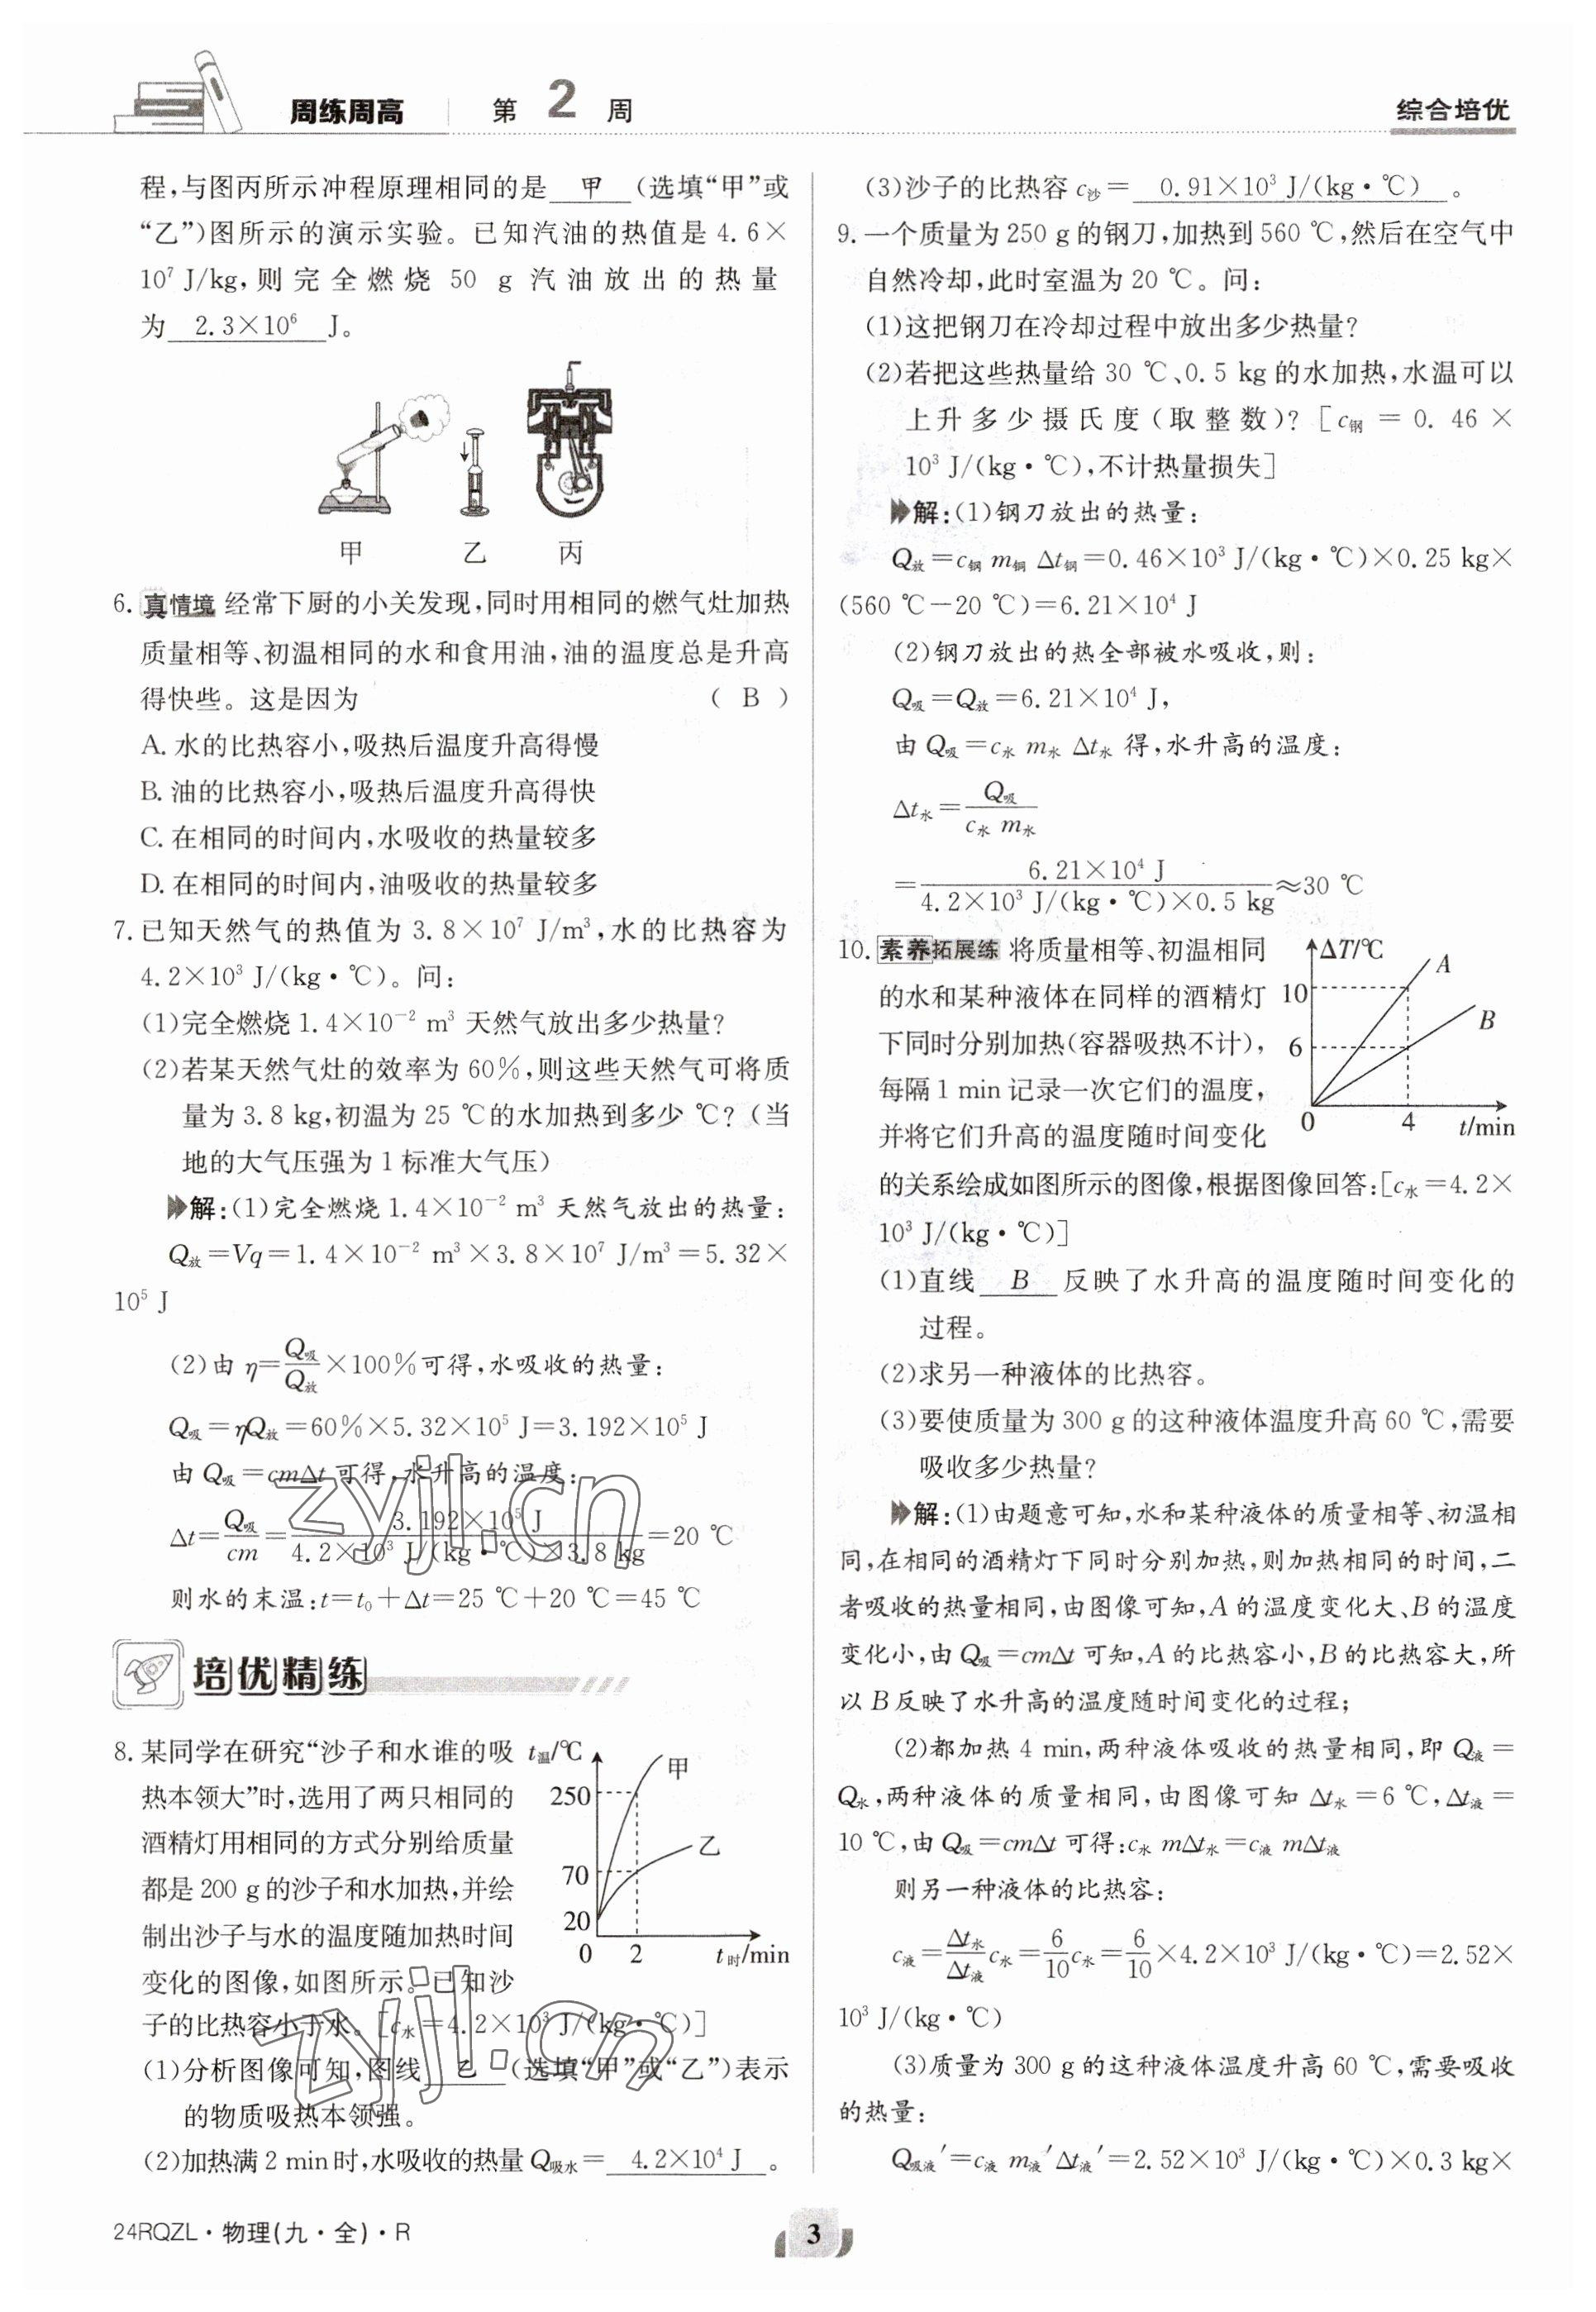 周练周高 第 2 周 综合培优
程,与图丙所示冲程原理相同的是 甲 (选填“甲”或
“乙”)图所示的演示实验。已知汽油的热值是 4.6×
10⁷ J/kg,则完全燃烧 50 g 汽油放出的热量
为 2.3×10⁶ J。
甲 乙 丙
6. 真情境 经常下厨的小关发现,同时用相同的燃气灶加热
质量相等、初温相同的水和食用油,油的温度总是升高
得快些。这是因为 ( B )
A. 水的比热容小,吸热后温度升高得慢
B. 油的比热容小,吸热后温度升高得快
C. 在相同的时间内,水吸收的热量较多
D. 在相同的时间内,油吸收的热量较多
7. 已知天然气的热值为 3.8×10⁷ J/m³,水的比热容为
4.2×10³ J/(kg·℃)。问:
(1)完全燃烧 1.4×10⁻² m³ 天然气放出多少热量?
(2)若某天然气灶的效率为 60%,则这些天然气可将质
量为 3.8 kg,初温为 25 ℃的水加热到多少 ℃?(当
地的大气压强为 1 标准大气压)
解:(1)完全燃烧 1.4×10⁻² m³ 天然气放出的热量:
Q放=Vq=1.4×10⁻² m³×3.8×10⁷ J/m³=5.32×
10⁵ J
(2)由 η=Q吸/Q放×100%可得,水吸收的热量:
Q吸=ηQ放=60%×5.32×10⁵ J=3.192×10⁵ J
由 Q吸=cmΔt 可得,水升高的温度:
Δt=Q吸/cm=3.192×10⁵ J/4.2×10³ J/(kg·℃)×3.8 kg=20 ℃
则水的末温:t=t₀+Δt=25 ℃+20 ℃=45 ℃
zyjl.cn
培优精练
8. 某同学在研究“沙子和水谁的吸
热本领大”时,选用了两只相同的
酒精灯用相同的方式分别给质量
都是 200 g 的沙子和水加热,并绘
制出沙子与水的温度随加热时间
变化的图像,如图所示。已知沙
子的比热容小于水。[c水=4.2×10³ J/(kg·℃)]
t温/℃
甲
250
乙
70
20
0 2 t时/min
(1)分析图像可知,图线 乙 (选填“甲”或“乙”)表示
的物质吸热本领强。
(2)加热满 2 min时,水吸收的热量 Q吸水= 4.2×10⁴ J 。
zyjl.cn
(3)沙子的比热容 c沙= 0.91×10³ J/(kg·℃) 。
9. 一个质量为 250 g 的钢刀,加热到 560 ℃,然后在空气中
自然冷却,此时室温为 20 ℃。问:
(1)这把钢刀在冷却过程中放出多少热量?
(2)若把这些热量给 30 ℃、0.5 kg 的水加热,水温可以
上升多少摄氏度(取整数)?[c钢=0.46×
10³ J/(kg·℃),不计热量损失]
解:(1)钢刀放出的热量:
Q放=c钢 m钢 Δt钢=0.46×10³ J/(kg·℃)×0.25 kg×
(560 ℃-20 ℃)=6.21×10⁴ J
(2)钢刀放出的热全部被水吸收,则:
Q吸=Q放=6.21×10⁴ J,
由 Q吸=c水 m水 Δt水 得,水升高的温度:
Δt水=Q吸/c水 m水
=6.21×10⁴ J/4.2×10³ J/(kg·℃)×0.5 kg≈30 ℃
10. 素养拓展练 将质量相等、初温相同
的水和某种液体在同样的酒精灯
下同时分别加热(容器吸热不计),
每隔 1 min 记录一次它们的温度,
并将它们升高的温度随时间变化
的关系绘成如图所示的图像,根据图像回答:[c水=4.2×
10³ J/(kg·℃)]
ΔT/℃
A
10
B
6
0 4 t/min
(1)直线 B 反映了水升高的温度随时间变化的
过程。
(2)求另一种液体的比热容。
(3)要使质量为 300 g 的这种液体温度升高 60 ℃,需要
吸收多少热量?
解:(1)由题意可知,水和某种液体的质量相等、初温相
同,在相同的酒精灯下同时分别加热,则加热相同的时间,二
者吸收的热量相同,由图像可知,A 的温度变化大、B 的温度
变化小,由 Q吸=cmΔt 可知,A 的比热容小,B 的比热容大,所
以 B 反映了水升高的温度随时间变化的过程;
(2)都加热 4 min,两种液体吸收的热量相同,即 Q液=
Q水,两种液体的质量相同,由图像可知 Δt水=6 ℃,Δt液=
10 ℃,由 Q吸=cmΔt 可得:c水 mΔt水=c液 mΔt液
则另一种液体的比热容:
c液=Δt水/Δt液c水=6/10c水=6/10×4.2×10³ J/(kg·℃)=2.52×
10³ J/(kg·℃)
(3)质量为 300 g 的这种液体温度升高 60 ℃,需要吸收
的热量:
Q吸液′=c液 m液′Δt液′=2.52×10³ J/(kg·℃)×0.3 kg×
24RQZL·物理(九·全)·R
3